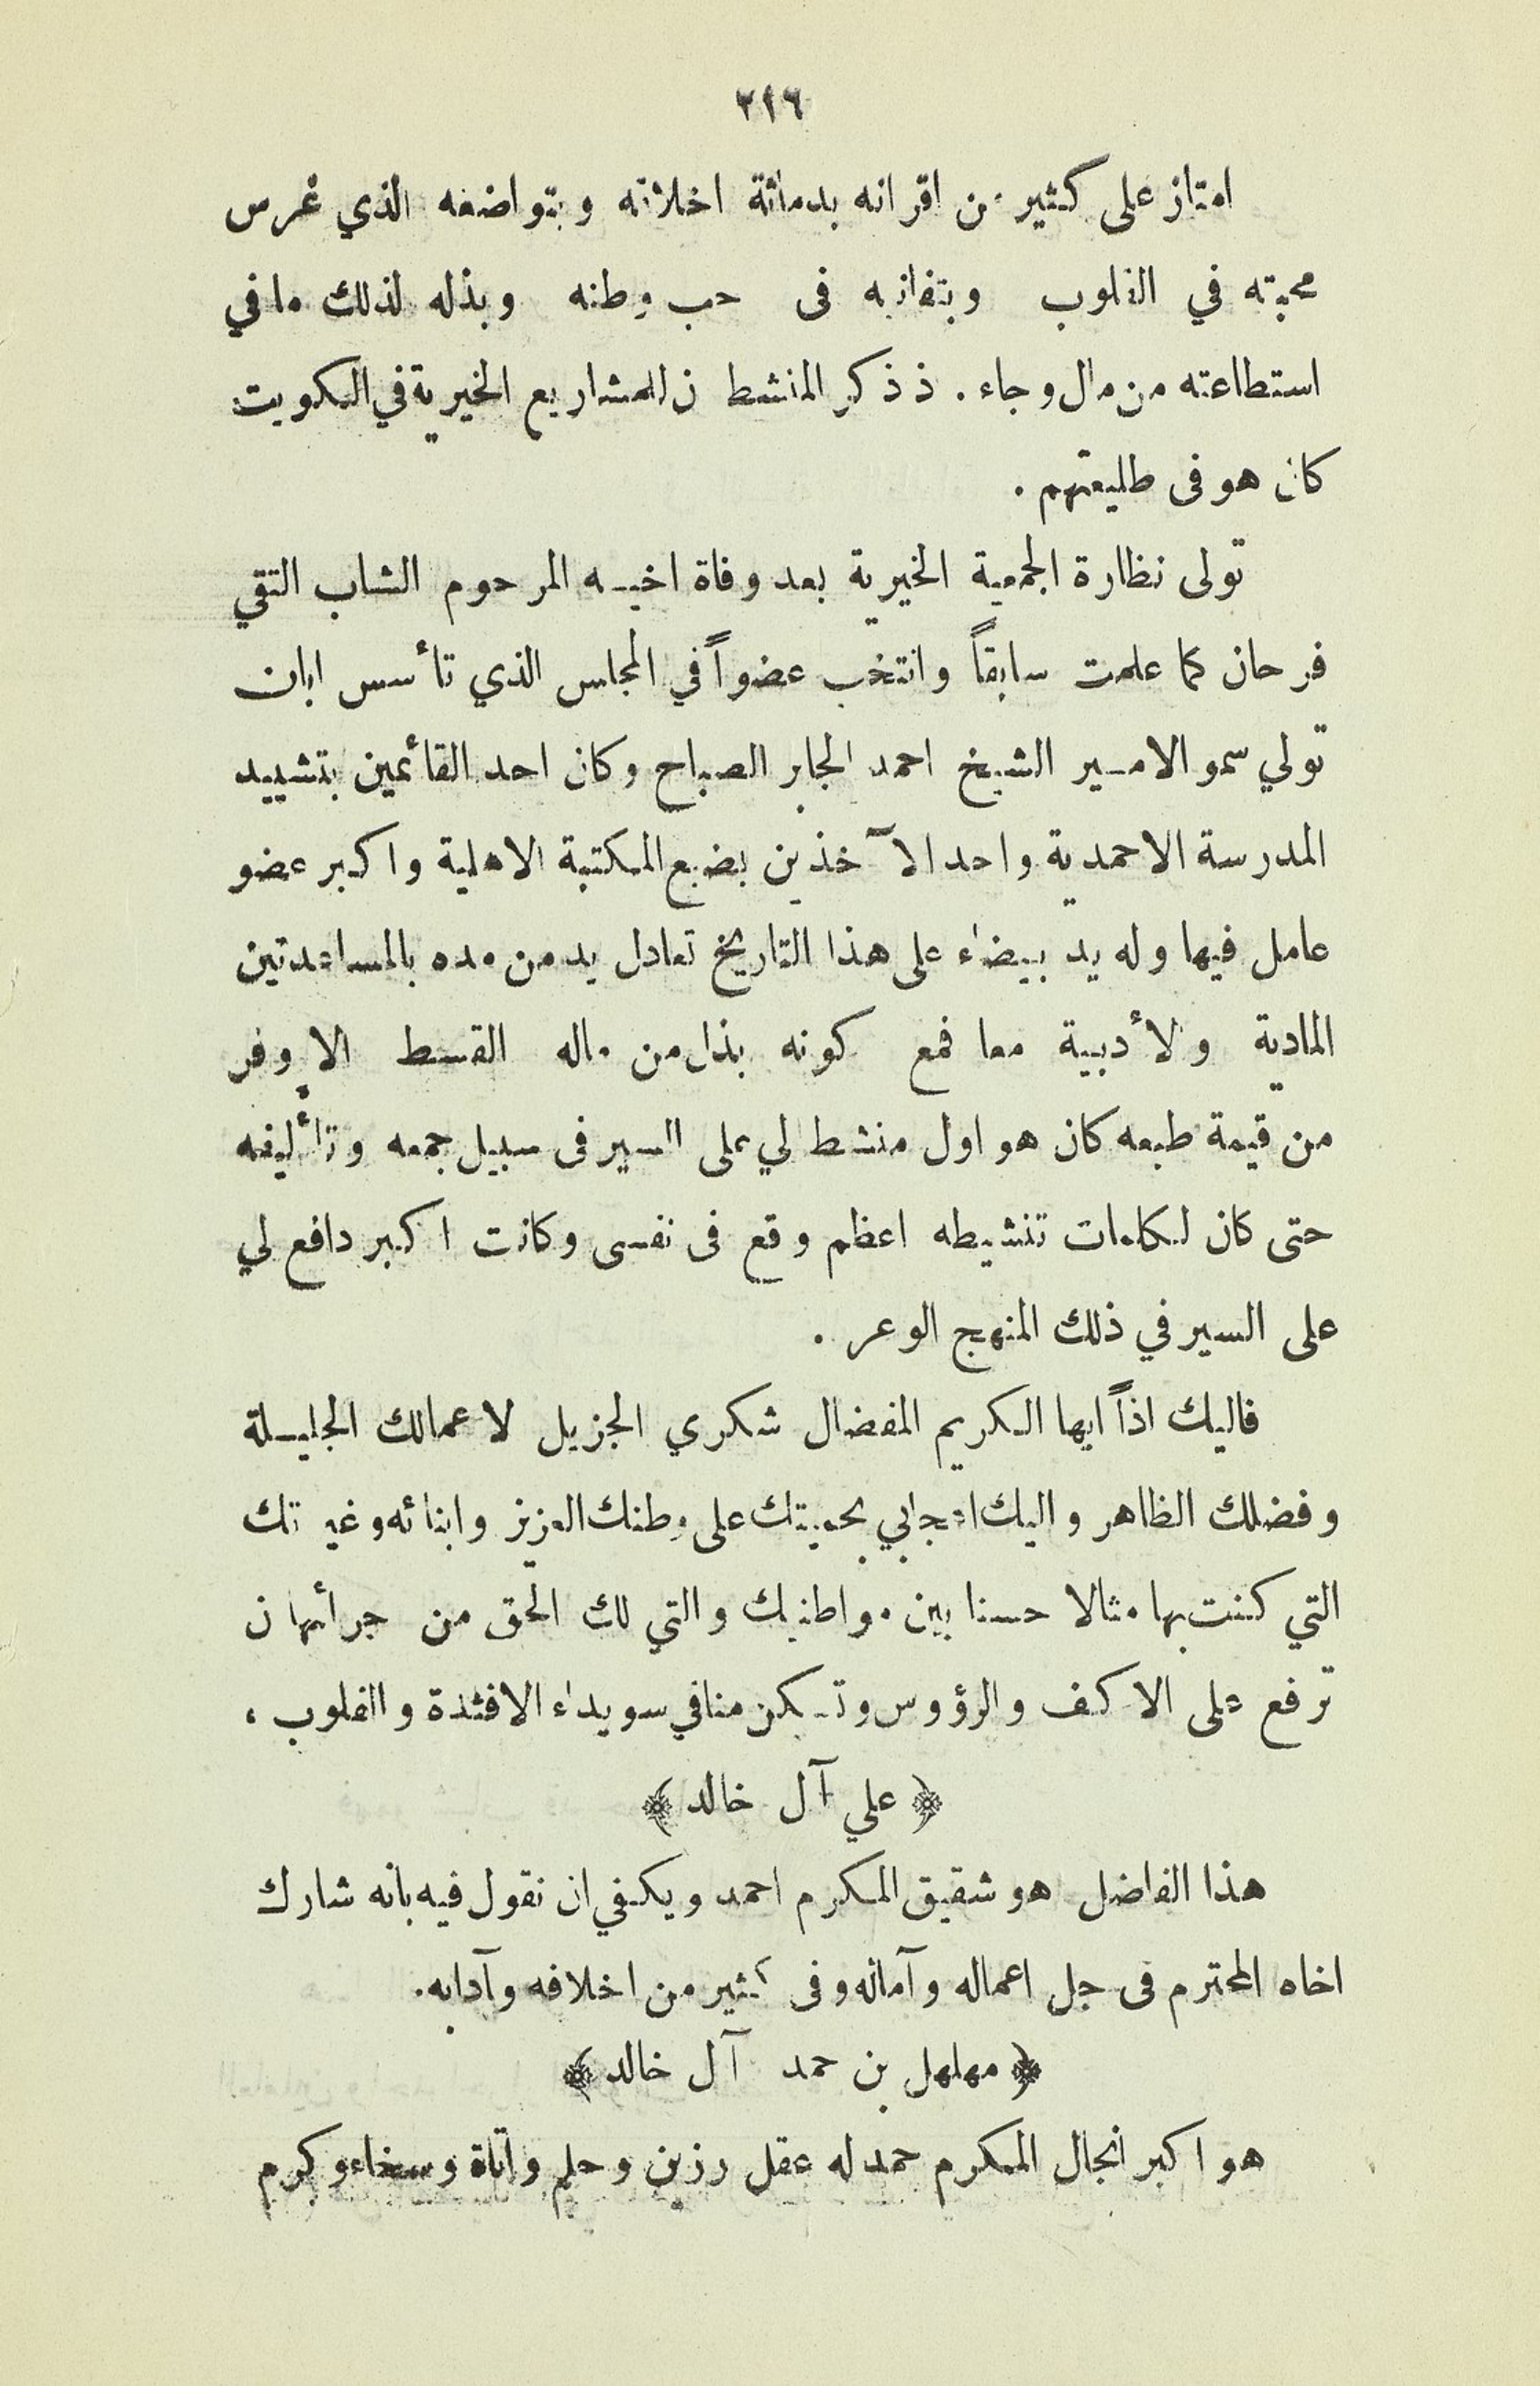 ٢٩٦
امتاز على كثير من اقرانه بدماثة اخلاقه وبتواضعه الذي غرس
محبته في القلوب وبتفانيه فى حب وطنه وبذله لذلك ما في
استطاعته من مال وجاء . ذ ذكر المنشطن للمشاريع الخيرية في الكويت
كان هو فى طليعتهم .
تولى نظارة الجمعية الخيرية بعد وفاة اخيه المرحوم الشاب التقي
فرحان كما علمت سابقاً وانتخب عضواً في المجلس الذي تأسس ابان
تولي سمو الامير الشيخ احمد الجابر الصباح وكان احد القائمين بتشييد
المدرسة الاحمدية واحد الآخذين بضبع المكتبة الاهلية واكبر عضو
عامل فيها وله يد بيضاء على هذا التاريخ تعادل يد من مده بالمساعدتين
المادية والأدبية معا فمع كونه بذل من ماله القسط الاوفر
من قيمة طبعه كان هو اول منشط لي على السير فى سبيل جمعه وتأليفه
حتى كان لكلمات تنشيطه اعظم وقع فى نفسى وكانت اكبر دافع لي
على السير في ذلك المنهج الوعر .
فاليك اذاً ايها الكريم المفضال شكري الجزيل لاعمالك الجليلة
وفضلك الظاهر واليك اعجابي بحميتك على وطنك العزيز وابنائه وغيرتك
التي كنت بها مثالا حسنا بين مواطنيك والتي لك الحق من جرائها ن
ترفع على الاكف والرؤوس وتسكن منا في سويداء الافئدة والقلوب ،
﴿ علي آل خالد ﴾
هذا الفاضل هو شقيق المكرم احمد ويكفي ان نقول فيه بانه شارك
اخاه المحترم فى جل اعماله وآماله وفى كثير من اخلاقه وآدابه .
﴿ مهلهل بن حمد آل خالد ﴾
هو اكبر انجال المكرم حمد له عقل رزين وحلم واناة وسخاء وكرم